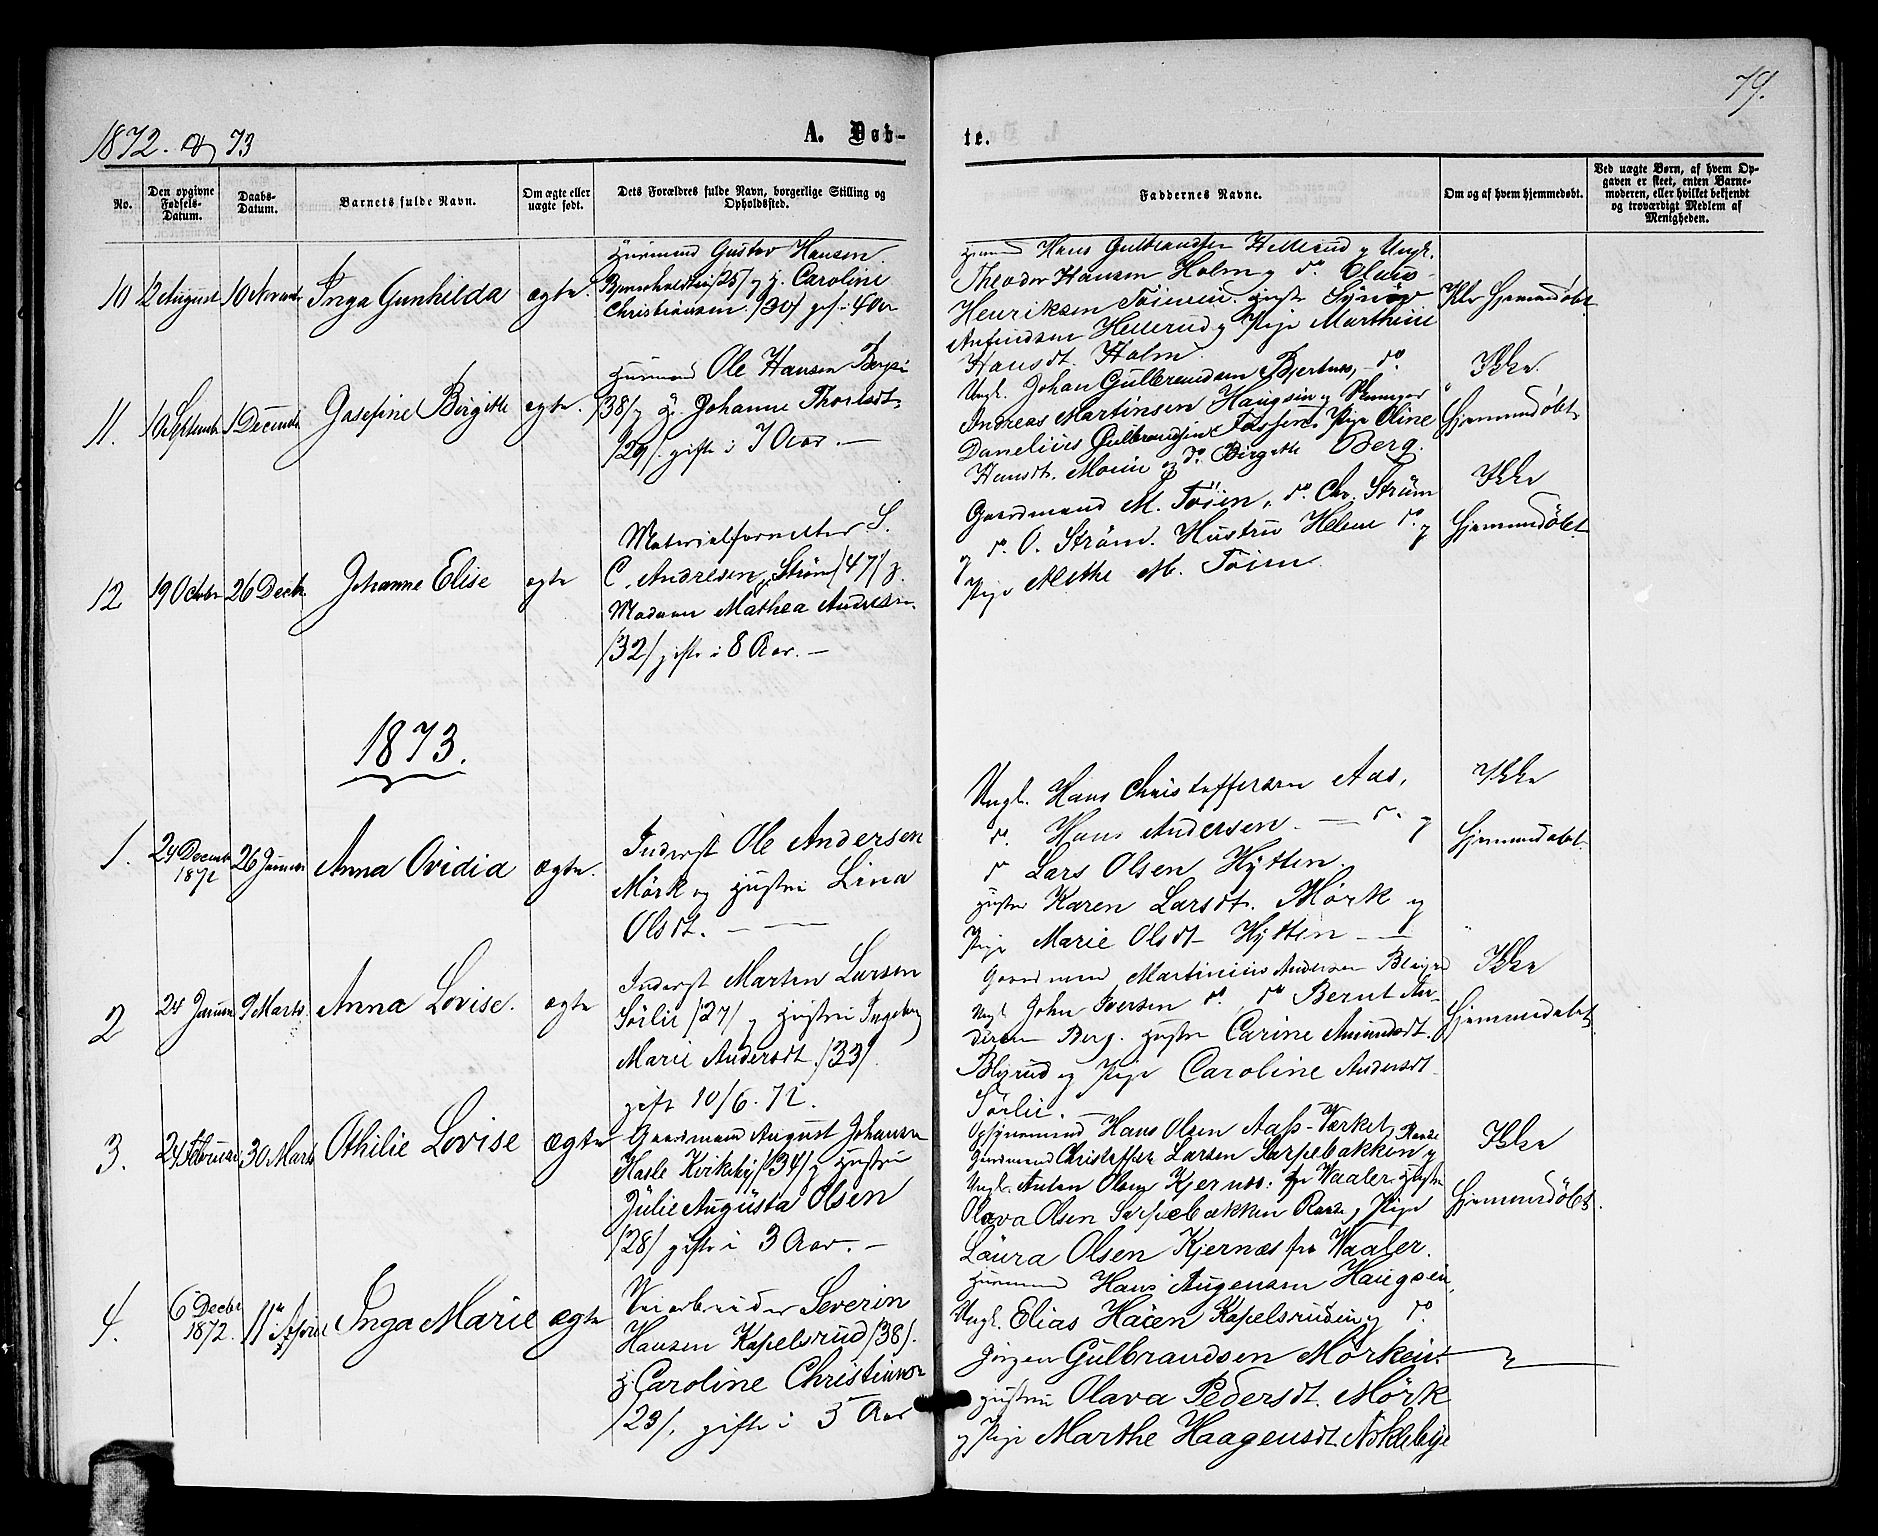 79.
1872. & 73
A. Døb-
te.
No.
Den opgivne Fødsels-Datum.
Daabs-Datum.
Barnets fulde Navn.
Om ægte eller uægte født.
Dets Forældres fulde Navn, borgerlige Stilling og Opholdssted.
Faddernes Navne.
Om og af hvem hjemmedøbt.
Ved uægte Børn, af hvem Opgaven er skeet, enten Barnemoderen, eller hvilket bekjendt og troværdigt Medlem af Menigheden.
10
2 August
10 Novbr
Inga Gunhilda
ægte.
Huusmand Gustav Hansen
/25/ og H. Caroline
Christiansen /30/ gift i 4 Aar
Hans Gulbrandsen Hellerud og Ungk.
Theodor Hansen Holm og do
Henriksen Tøien. Hustr
Hellerud og Pige Marthine
Hansdt. Holm.
Ikke Hjemmedøbt
11.
1 Septembr
1 Decembr
Josefine Birgitte
ægte.
Huusmand Ole Hansen
/38/ og H. Johanne
/29/. gifte i 7 Aar. —
Ungk. Johan Gulbrandsen Bjertnes, do
Andreas Martinsen Haugen og
Danelius Gulbrandsen Pige Oline
Hansdt. Moen og do Birgitte Berg.
Ikke
Hjemmedøbt
12
19 Octobr
26 Decbr.
Johanne Elise
ægte
Materialforvalter S.
C. Andresen, Strøm /47/ og
Madame Mathea Andresen
/32/ gifte i 8 Aar. —
Gaardmand M. Tøien, do. Chr. Strøm
og do. O. Strøm. Hustru Helene do. og
Pige Methe M. Tøien.
Ikke
Hjemmedøbt
1873.
1.
24 Decembr 1872
26 Januar
Anna Ovidia
ægte.
Inderst Ole Andersen
Mørk og Hustru Lina
Olsdt. — —
Ungk. Hans Christoffersen Aas,
do. Hans Andersen — do. og
do Lars Olsen Hytten.
Hustr Karen Larsdt. Mørk og
Pige Marie Olsdt Hytten —
Ikke
Hjemmedøbt
2
24 Januar
9 Marts
Anna Lovise.
ægte
Inderst Marten Larsen
Sørlie /27/ og Hustru Ingeborg
Marie Andersdt. /33/
gift 10/6. 72.
Gaardmand Martinius Andersen
Ungk John Iversen do. do Bernt An-
dersen Berg. Hustru Carine Amundsdt.
Blyrud og Pige Caroline Andersdt
Sørlie. —
Ikke
Hjemmedøbt
3.
24 Februar
30 Marts
Othilie Lovise
ægte
Gaardmand August Johansen
Hasle Kirkeby /34/ og Hustru
Julie Augusta Olsen
/28/ gifte i 3 Aar. —
Opsynsmand Hans Olsen Aass-Værket,
Gaardmand Christoffer Larsen Sarpebakken og
Ungk. Anton Olsen Kjernes: fra Vaaler. Hustru
Olava Olsen Sarpebakken og Pige
Laura Olsen Kjernæs fra Vaaler.
Ikke
Hjemmedøbt.
4.
6 Decbr 1872.
11te April
Inga Marie
ægte
Veiarbeider Severin
Hansen Kapelsrud /38/.
H. Caroline Christiansen
/23/. gifte i 5 Aar
Huusmand Hans Augensen Haugen,
Ungk. Elias Kapelsruden og do
Jørgen Gulbrandsen Mørkeie.
Hustru Olava Pedersdt. Mørk
og Pige Marthe Haagensdt. Nøkleby